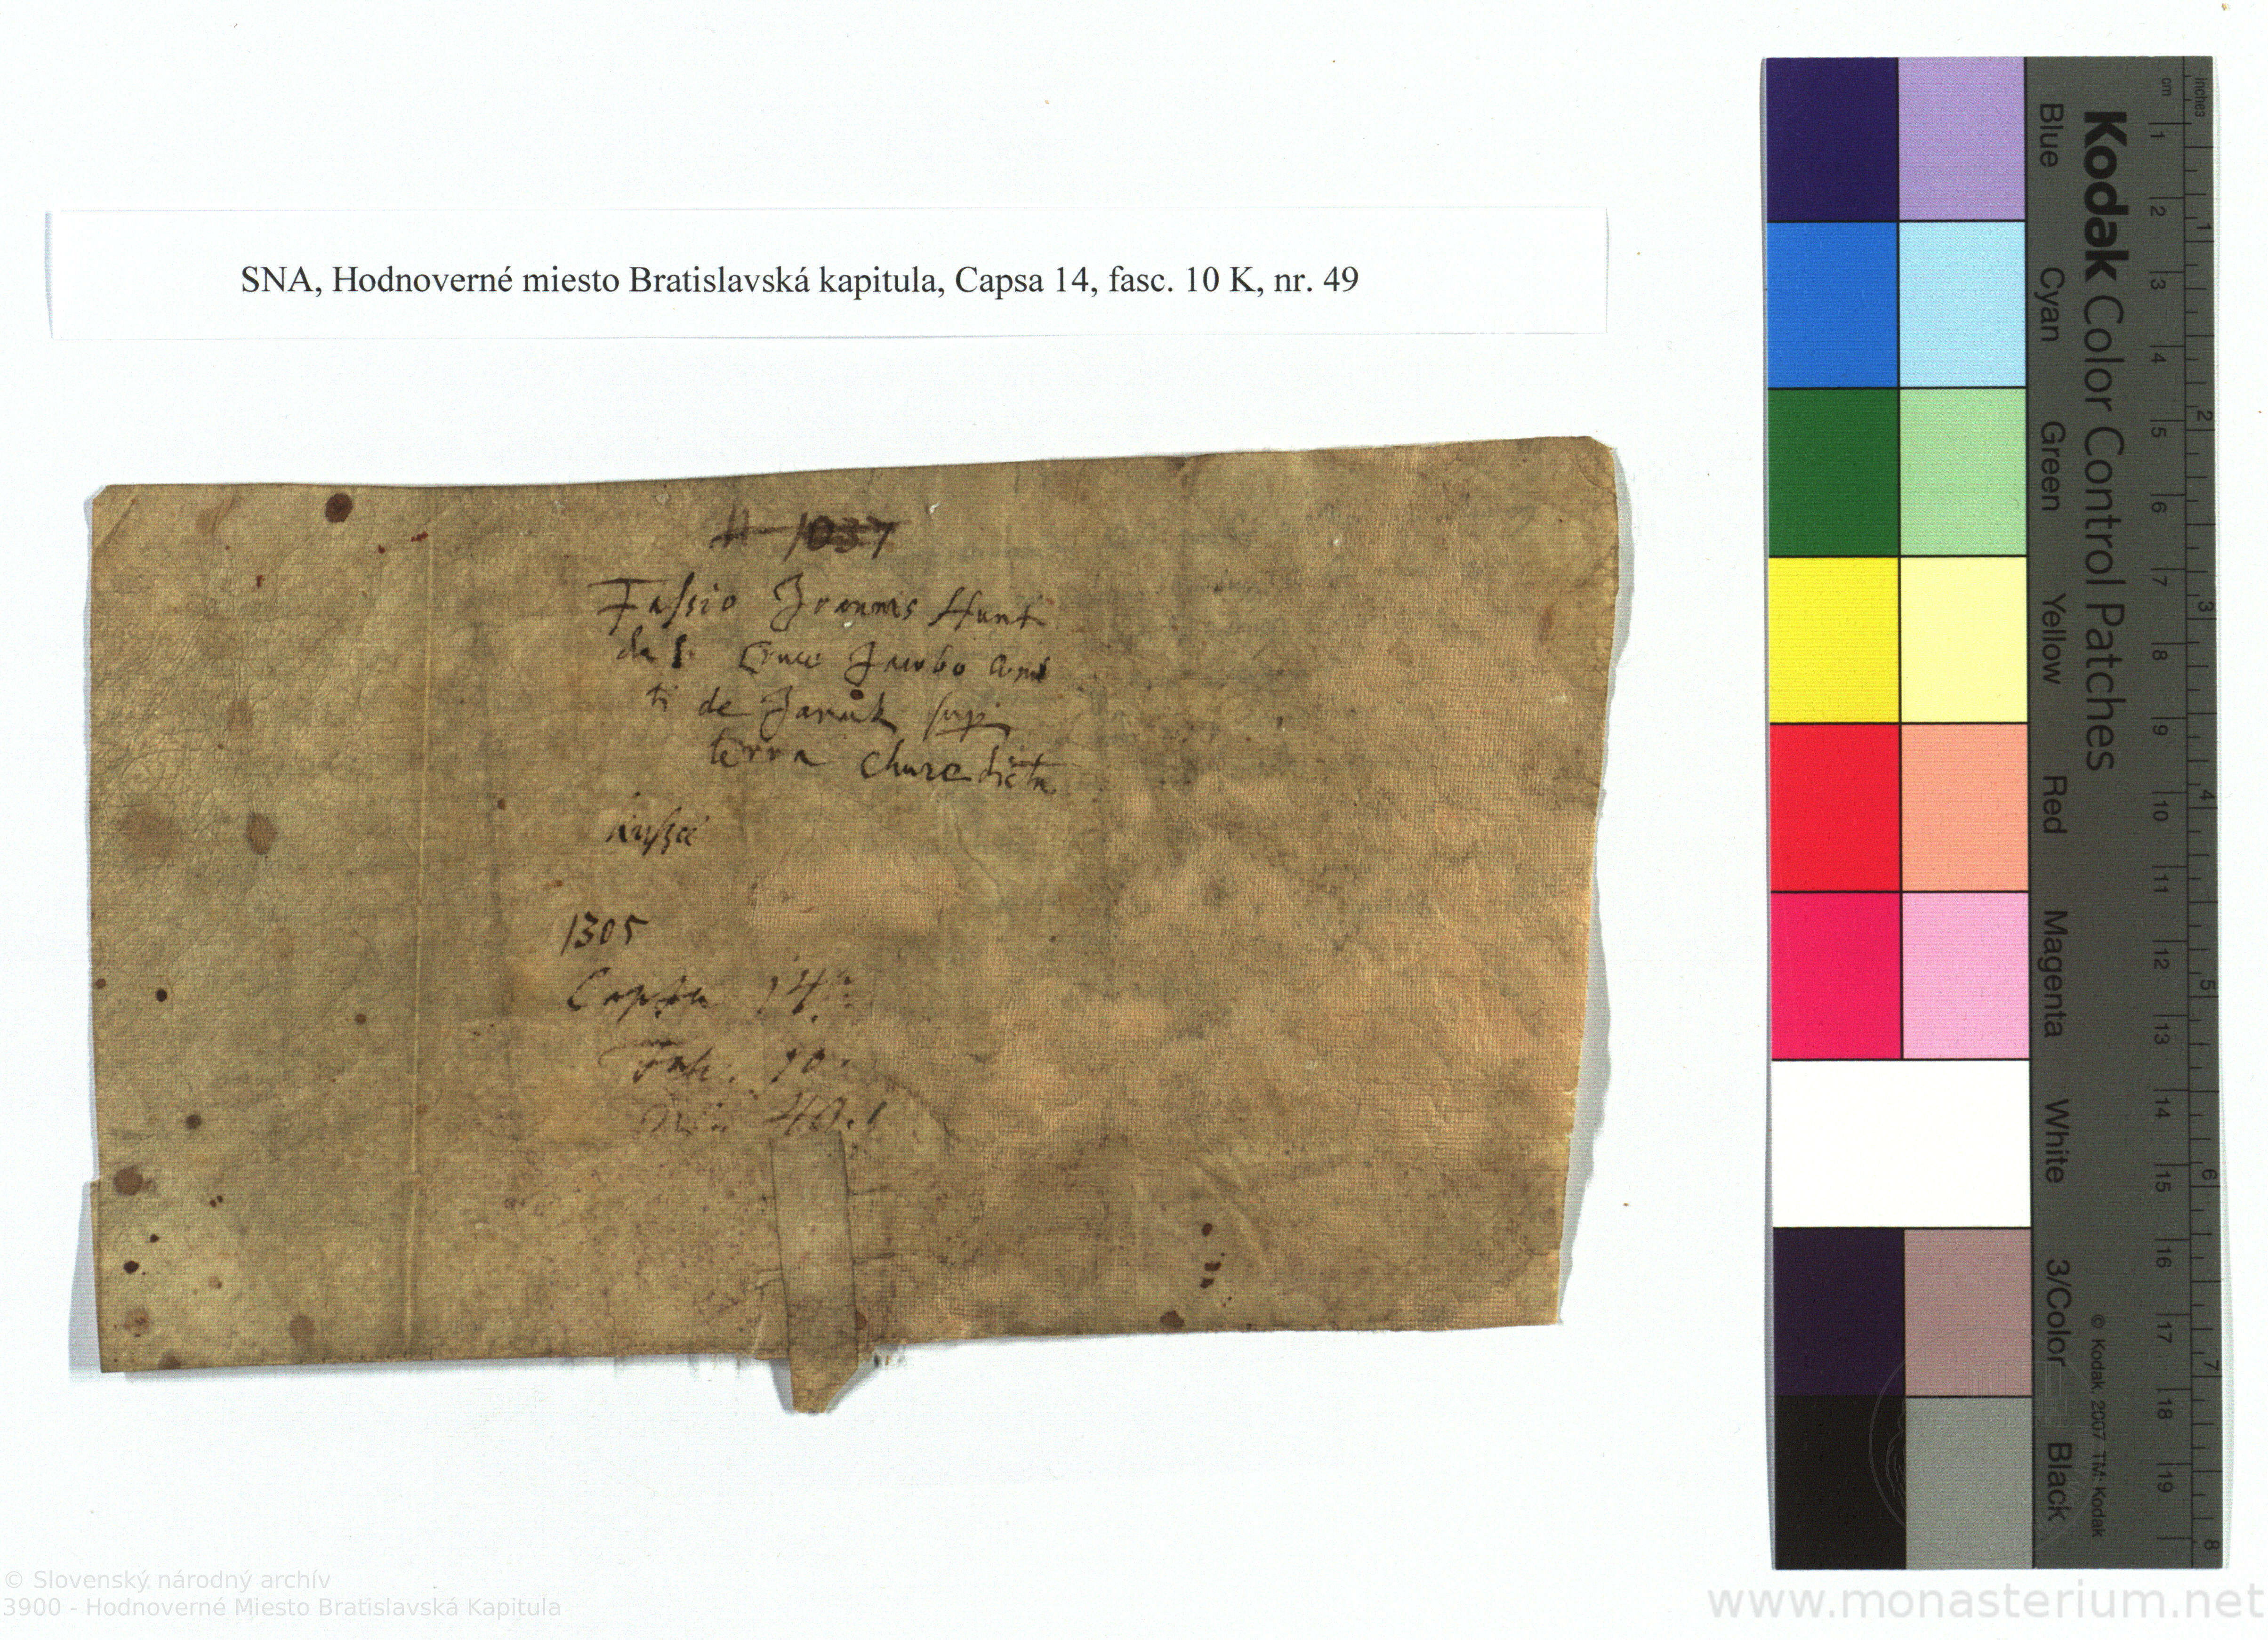 SNA, Hodnoverné miesto Bratislavská kapitula, Capsa 14, fasc. 10 K, nr. 49
1037
Fassio Joannis Hunt
de S. Cruce Jacobo Comi
ti de Jarük sup.
terra Chure dicta
1305
Capsa 14
Fasc. 10.
49.
Kodak Color Control Patches
Blue Cyan Green Yellow Red Magenta White 3/Color Black
© Kodak, 2007 TM: Kodak
cm 1 2 3 4 5 6 7 8 9 10 11 12 13 14 15 16 17 18 19
inches 1 2 3 4 5 6 7 8
© Slovenský národný archív
3900 - Hodnoverné Miesto Bratislavská Kapitula
www.monasterium.net